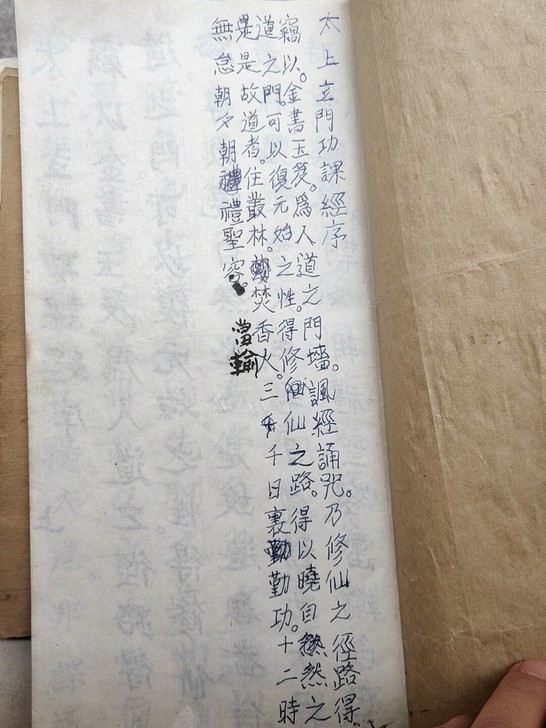 太上玄門功課經序
竊以。金書玉笈。為人道之門墻。諷經誦咒。乃修仙之徑路得
道之門。可以復元始之性。得修仙之路。得以曉自然之
是故道者。住叢林。焚香火。三千日裏勤功。十二時
無怠朝夕朝禮聖容。
當輸